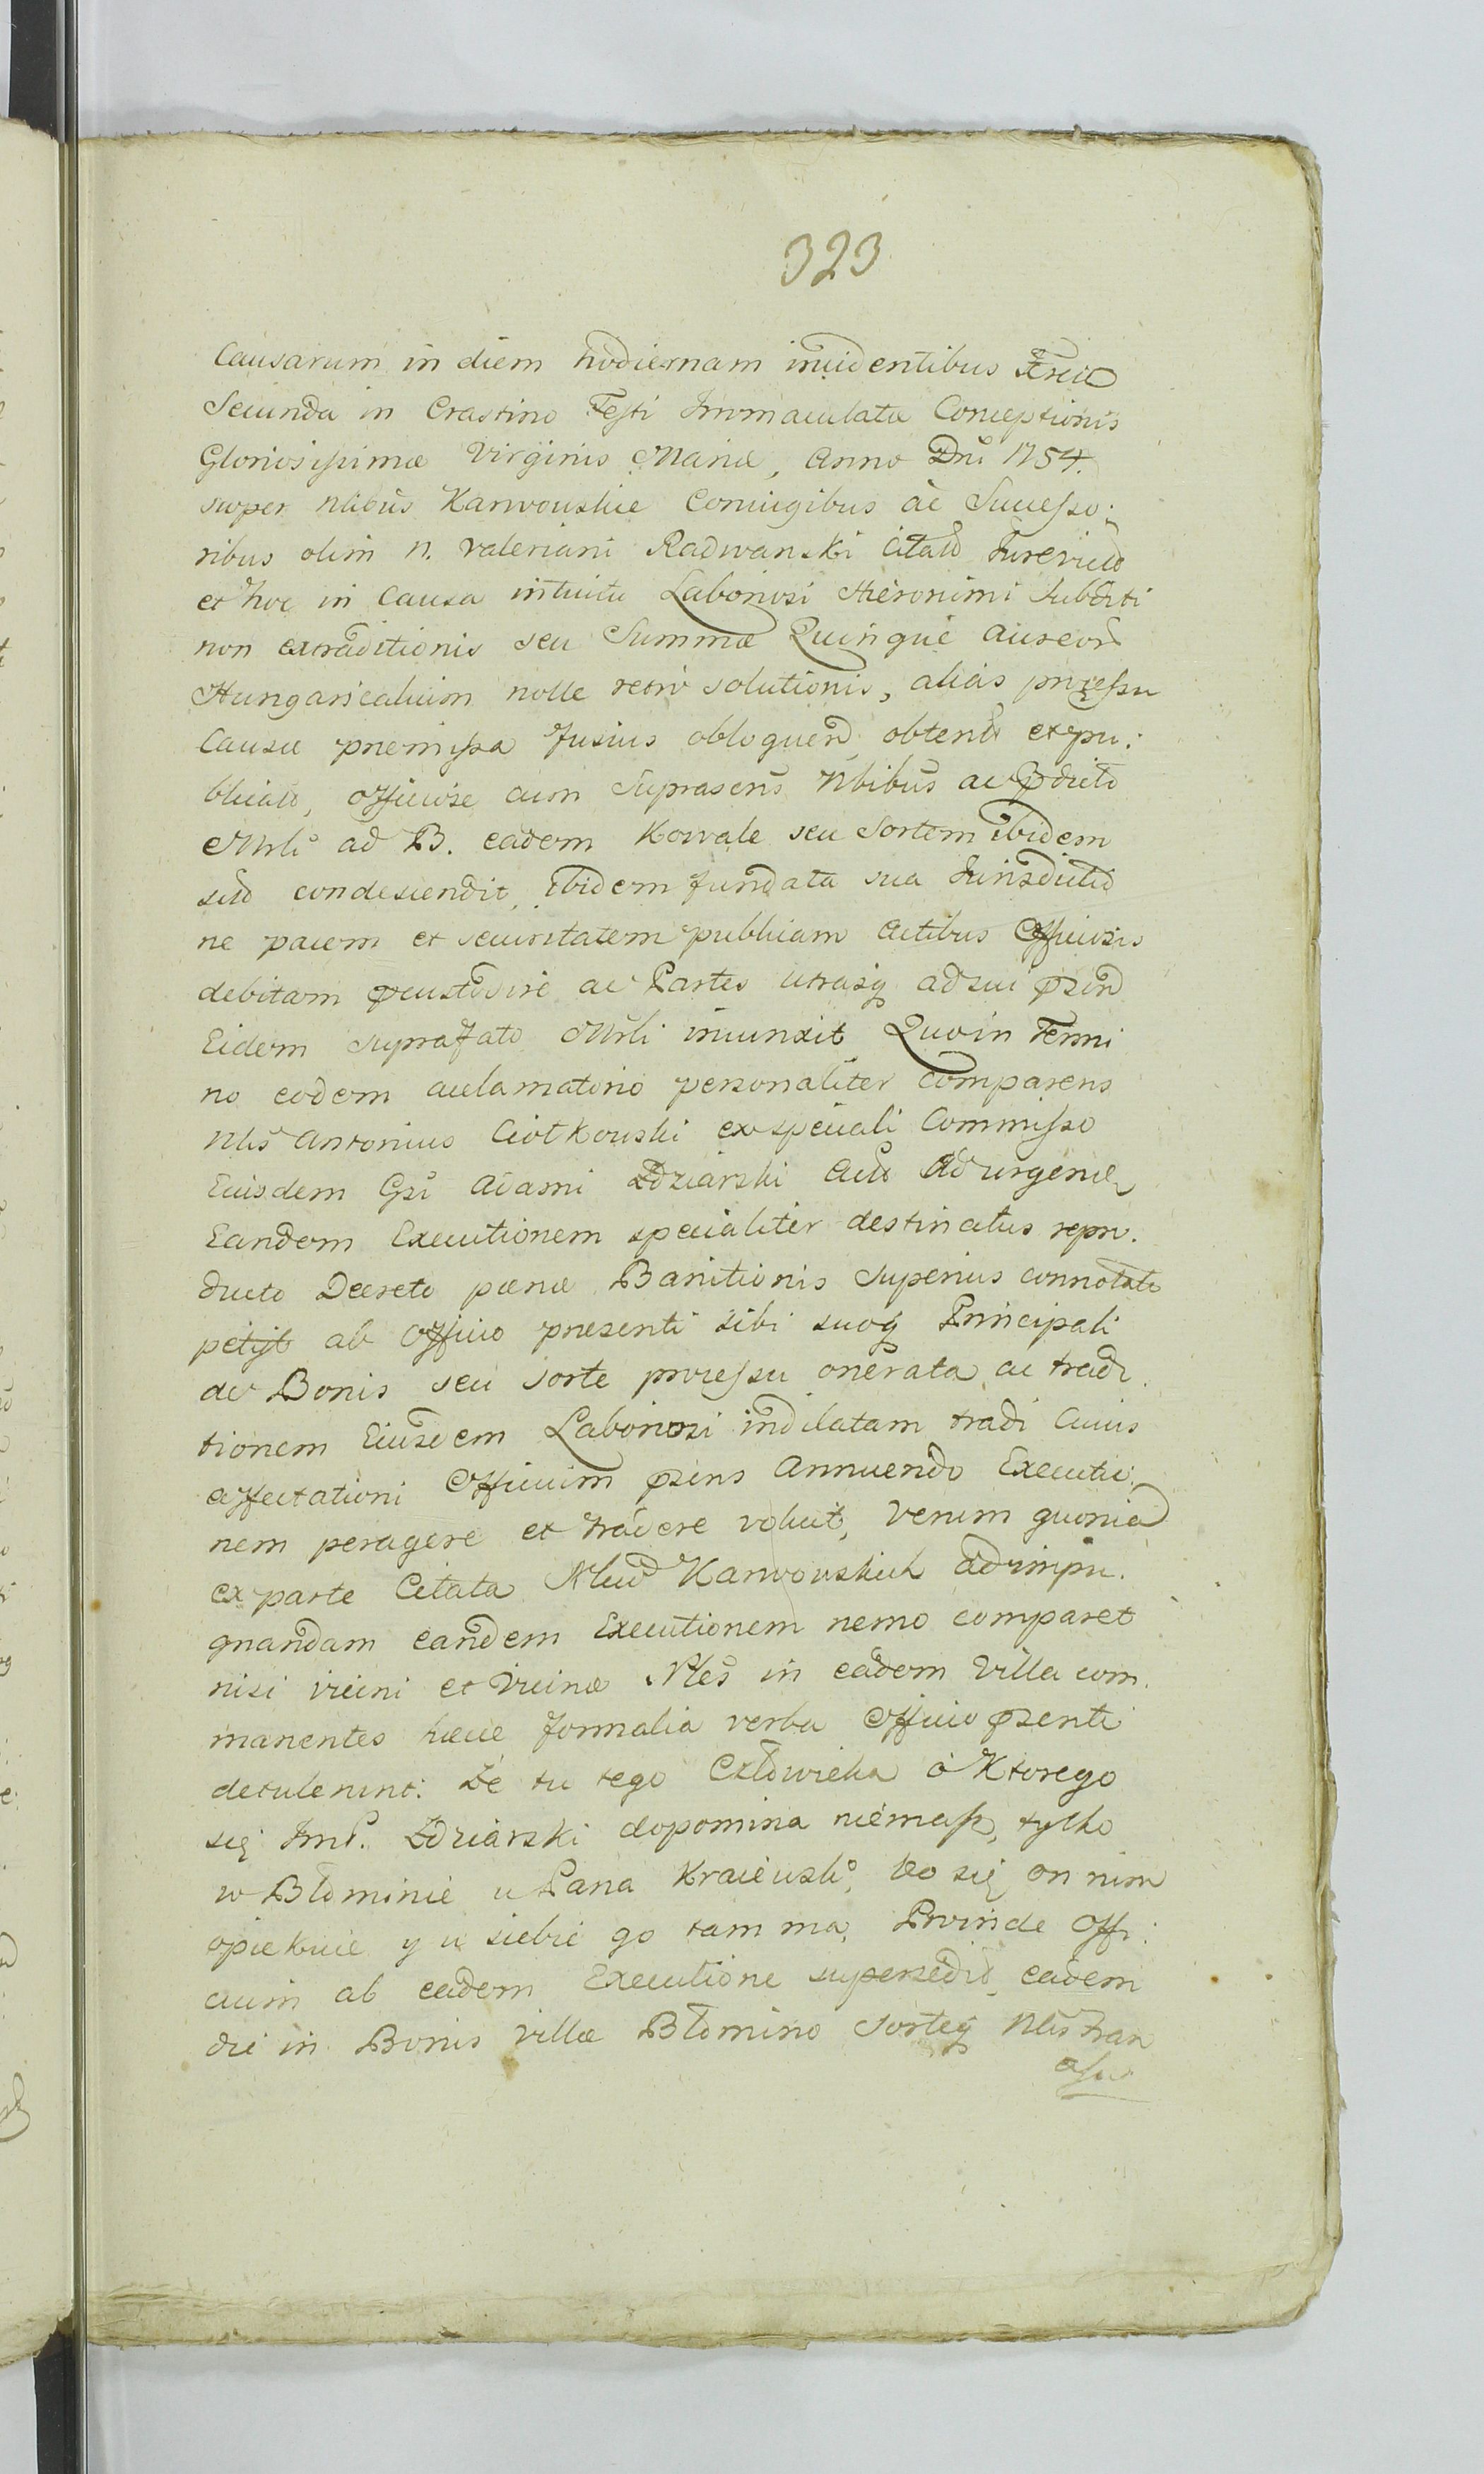 323
Causarum in diem hodiernam inuidentibus Feria
Secunda in Crastino Festi Immaculatæ Conceptionis
Gloriosissimæ Virginis Mariæ, Anno Dni 1754.
super Nlibus Karwouskie Coniugibus ac Successo:
ribus olim n. Valeriani Radwanski Citatis
et hoc in Causa intuitu Laboriosi Hieronimi Subditi
non extraditionis seu Summæ Quinque aureor
Hungaricalium nolle retro solutionis, alias processu
Causæ præmissa fusius obloquen obtent et pu:
blicato, officiose cum suprascris Nbibus ac
Mrli ad B. eadem Kowale seu Sortem ibidem
condescendit, ibidem fundata sua Jurisdictio
ne pacem et securitatem publicam actibus Officiosis
debitam pcustodire ac Partes utrasq ad sui psen
Eidem suprafato Mrli iniunxit Quo in Termi
no eodem acclamatorio personaliter comparens
Nlis Antonius Ciotkouski ex speciali Commisso
Eiusdem Gsi Adami Zdziarski Act Ad urgen
Eandem Executionem specialiter destinatus repro.
ducto Decreto pœnæ Banitionis superius connotato
petijt ab Officio presenti sibi suoq Principali
de Bonis seu sorte processu onerata, ac tradi
tionem Eiusdem Laboriosi indilatam tradi Cuius
affectationi Officium psens Annuendo Executio:
nem peragere et tradere voluit, Verum quonia
ex parte Citata Karwouskich ad impu.
gnandam eandem Executionem nemo comparet
nisi vicini et Vicinæ Nles in eadem Villa com.
manentes hæcce formalia verba Officio psenti
detulerunt: Ze tu tego Człowieka o Ktorego
się ImP. Zdziarski dopomina niemasz, tylko
w Błominie u Pana Kraieusko, bo się on nim
opiekuie y u siebie go tam ma, Proinde Offi:
cium ab eadem Executione supersedit, eadem
die in Bonis villæ Błomino Sorteq Nlis Fran